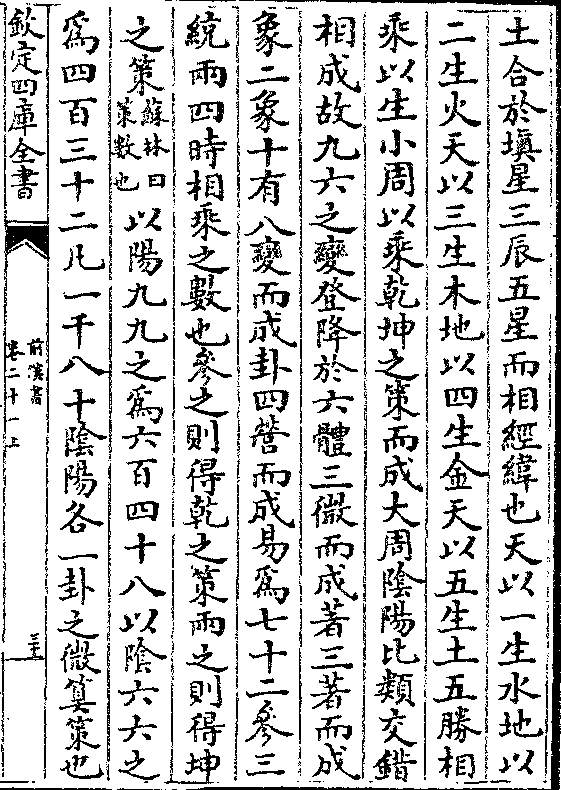 土合於塡星三辰五星而相經緯也天以一生水地以
二生火天以三生木地以四生金天以五生土五勝相
乘以生小周以乘乾坤之策而成大周陰陽比類交錯
相成故九六之變登降於六體三微而成著三著而成
象二象十有八變而成卦四營而成易爲七十二參三
統兩四時相乘之數也參之則得乾之策兩之則得坤
之策蘇林曰策數也以陽九九之爲六百四十八以陰六六之
爲四百三十二凡一千八十陰陽各一卦之微算策也
欽定四庫全書
前漢書
卷二十一上